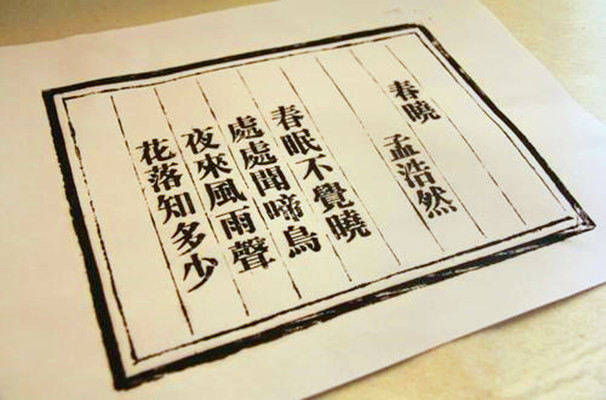 春曉　孟浩然
春眠不覺曉
處處聞啼鳥
夜來風雨聲
花落知多少